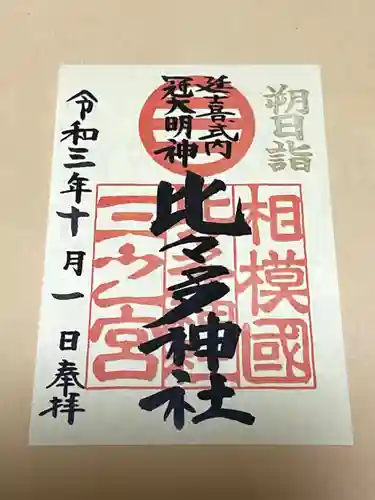 朔日詣
延喜式内
冠大明神
相模國
三之宮
比々多神社
令和三年十月一日奉拝